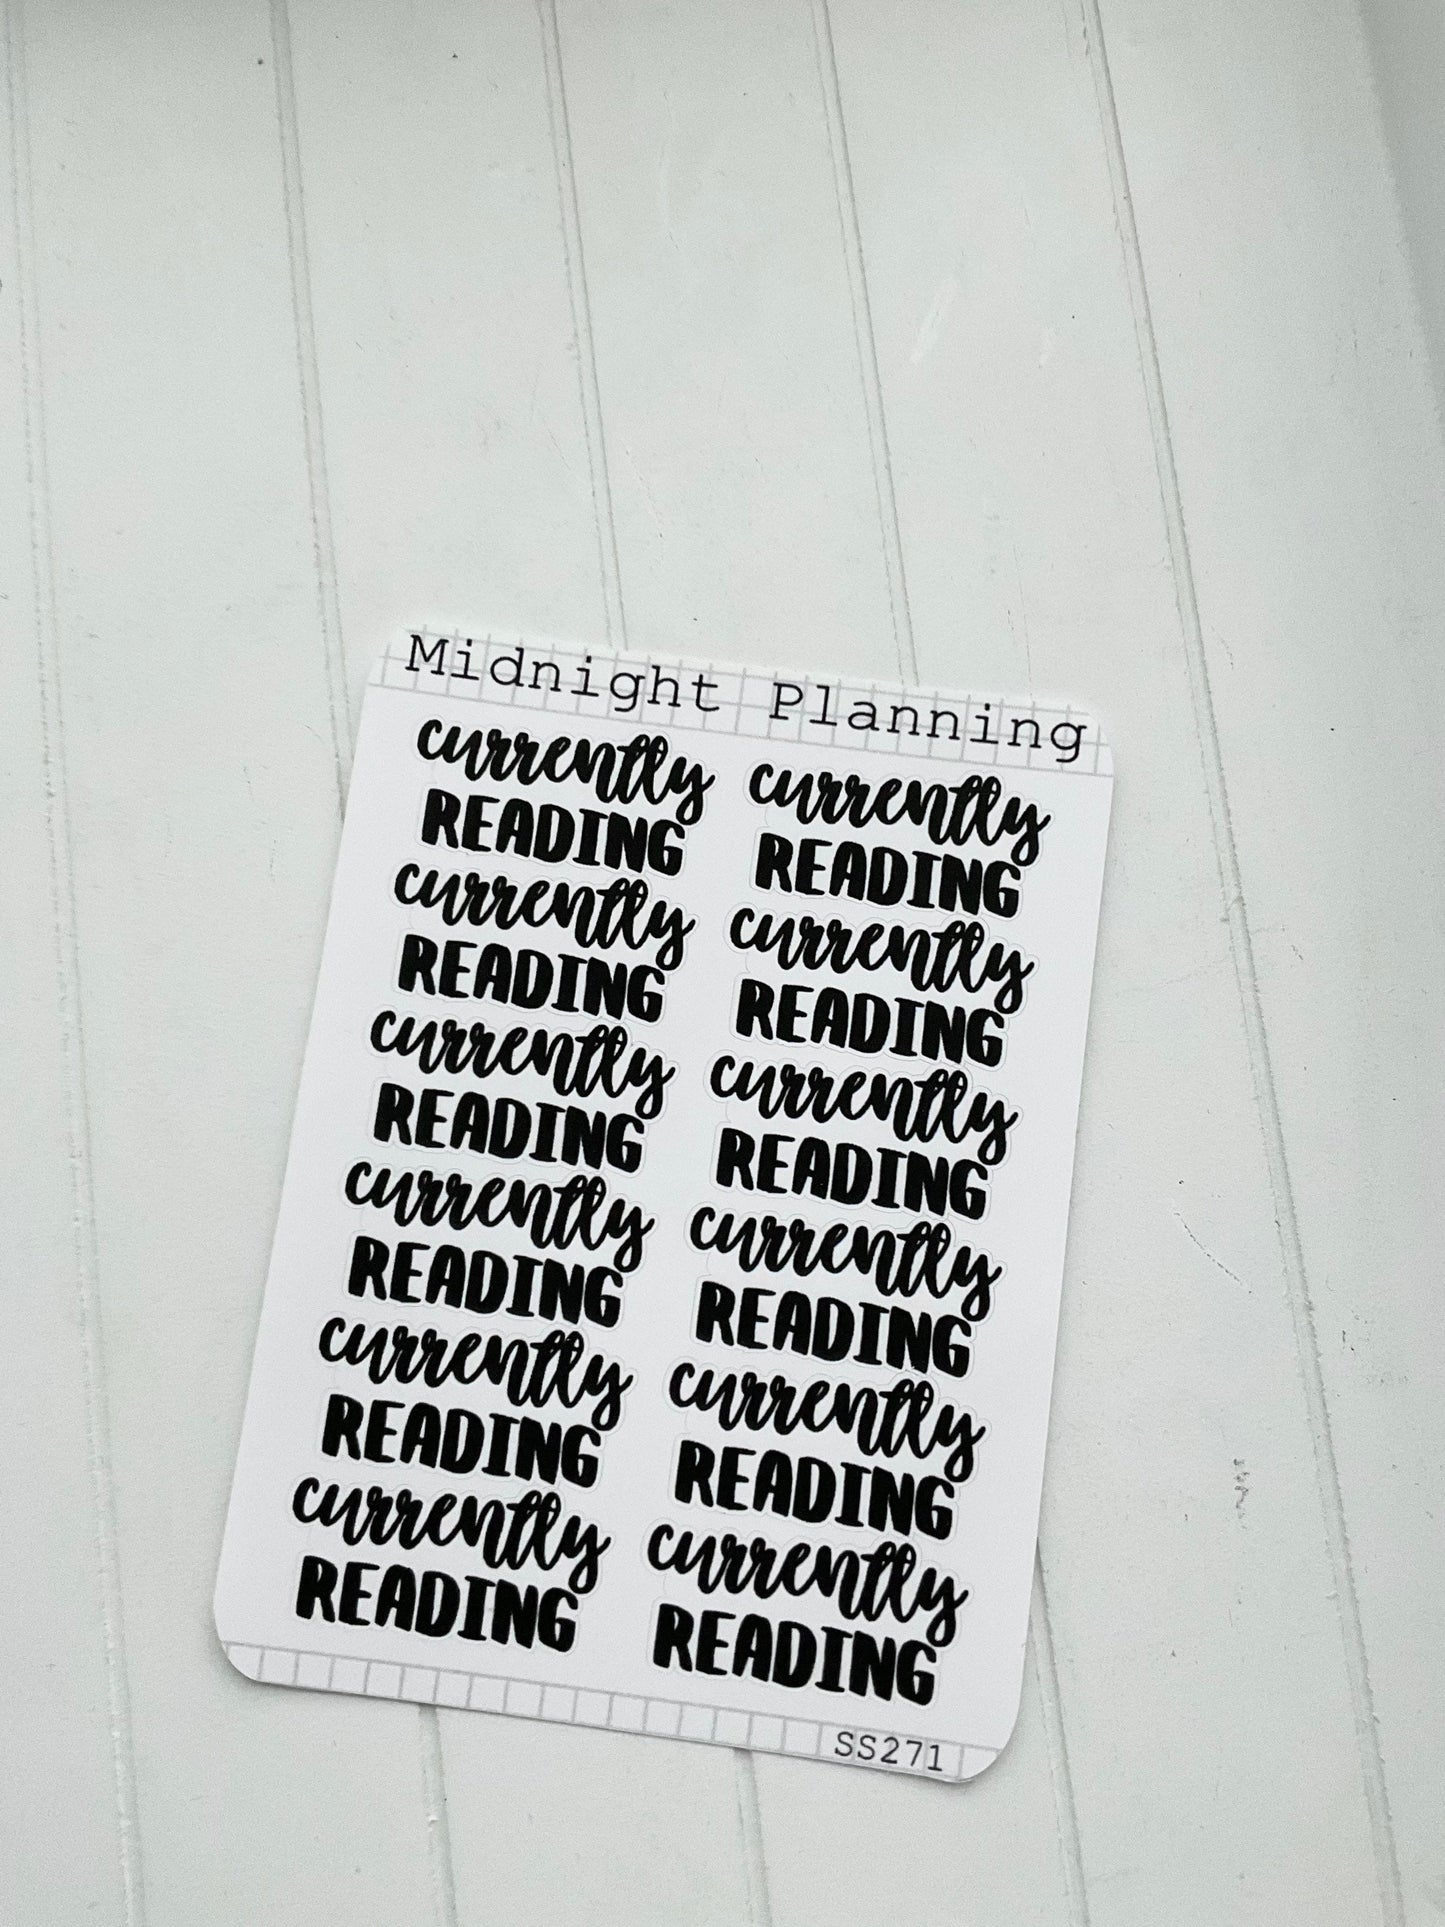 Midnight Planning
currently currently
READING READING
currently currently
READING READING
currently currently
READING READING
currently currently
READING READING
currently currently
READING READING
currently currently
READING READING
SS271